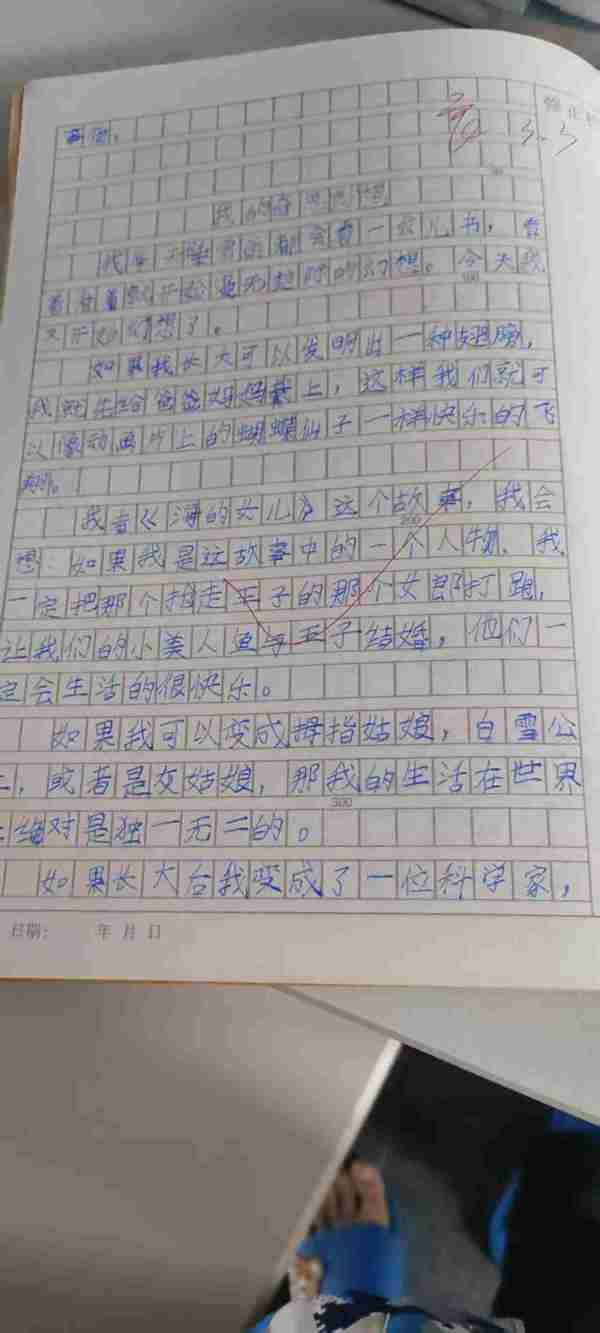 画面。
3.3
我的奇思妙想
我每天睡觉前都会看一会儿书，看
着看着就开始遨无边际的幻想。今天我
又开始幻想了。
如果我长大可以发明出一种翅膀，
我就先给爸爸妈妈戴上，这样我们就可
以像动画片上的蝴蝶仙子一样快乐的飞
翔。
我看《海的女儿》这个故事，我会
想：如果我是这故事中的一个人物，我
一定把那个抢走王子的那个女郎打跑，
让我们的小美人鱼与王子结婚，他们一
定会生活的很快乐。
如果我可以变成拇指姑娘，白雪公
主，或者是灰姑娘，那我的生活在世界
上绝对是独一无二的。
如果长大后我变成了一位科学家，
100
200
300
日期： 年 月 日